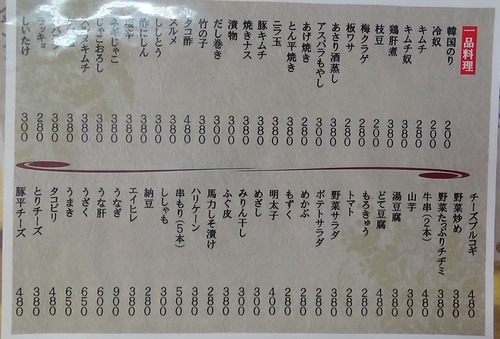 一品料理
韓国のり 200
冷奴 200
キムチ 280
キムチ奴 380
鶏肝煮 380
枝豆 280
梅クラゲ 280
板ワサ 280
あさり酒蒸し 380
アスパラもやし 300
あげ焼き 280
とん平焼き 380
ニラ玉 380
豚キムチ 380
焼きナス 380
漬物 300
だし巻き 380
竹の子 380
タコ酢 480
スルメ 380
ししとう 300
酢にしん 380
380
ネギじゃこ 380
じゃこおろし 380
キムチ 380
380
ラッキョ 280
しいたけ 300
チーズプルコギ 480
野菜炒め 380
野菜たっぷりチヂミ 480
牛串(2本) 380
山芋 300
湯豆腐 300
どて豆腐 480
もろきゅう 280
トマト 280
野菜サラダ 380
ポテトサラダ 280
めかぶ 280
もずく 280
明太子 400
めざし 280
みりん干し 380
ふぐ皮 280
馬力しそ漬け 380
ハリケーン 380
串もり(5本) 500
ししゃも 300
納豆 280
エイヒレ 380
うなぎ 900
うな肝 600
うざく 650
うまき 650
タコピリ 480
とりチーズ 380
豚平チーズ 480